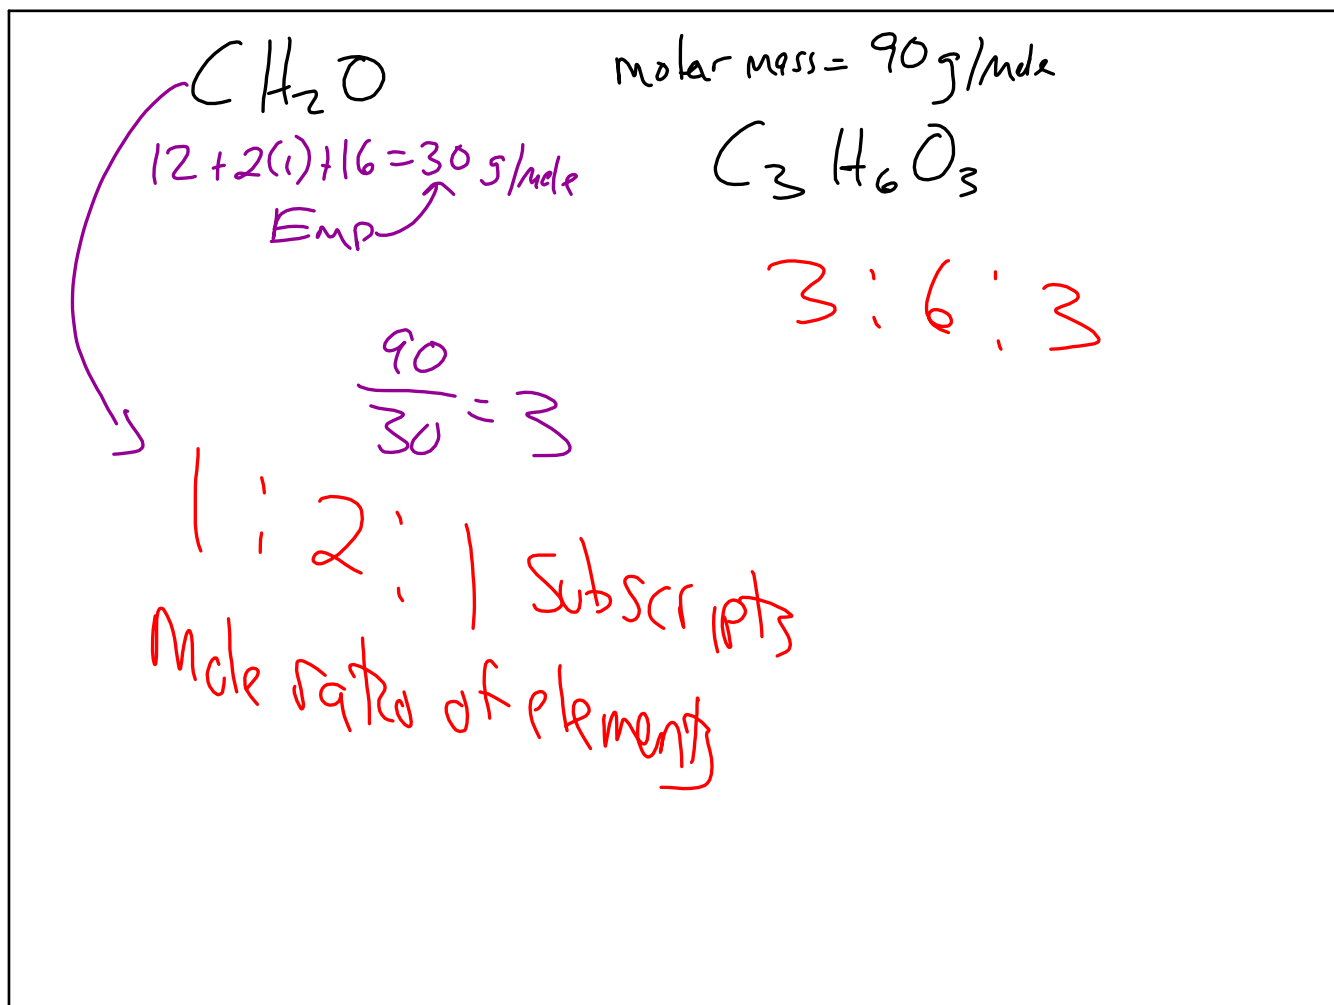 CH₂O
molar mass = 90 g/mole
12 + 2(1) + 16 = 30 g/mole
C₃H₆O₃
Emp
3 : 6 : 3
90
30 = 3
1 : 2 : 1 Subscripts
Mole ratio of elements